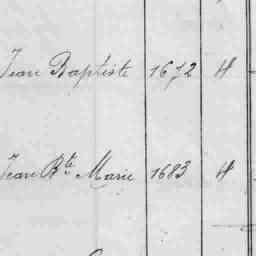 Jean Baptiste 1672 H
Jean Bte Marie 1683 H